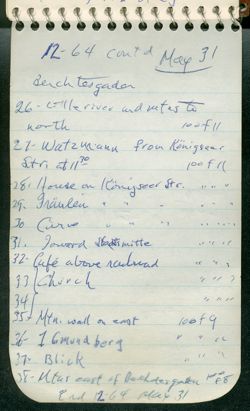 12-64 cont'd May 31
Berchtesgaden
26- little river and mtns to
north 100 of 11
27- Watzmann from Königseer
Str. at 11³⁰ 100 of 11
28- House on Königseer Str. " " "
29. Fräulein " " " " "
30. Curve " " " " " "
31. Toward mitte " " "
32- Café above railroad " " "
33 Church " " "
34 " " "
35- Mtn. wall on east 100 of 9
36- " Gmundberg " "
37- Blick " "
38- Mtns east of Berchtesgaden
End 12-64 May 31